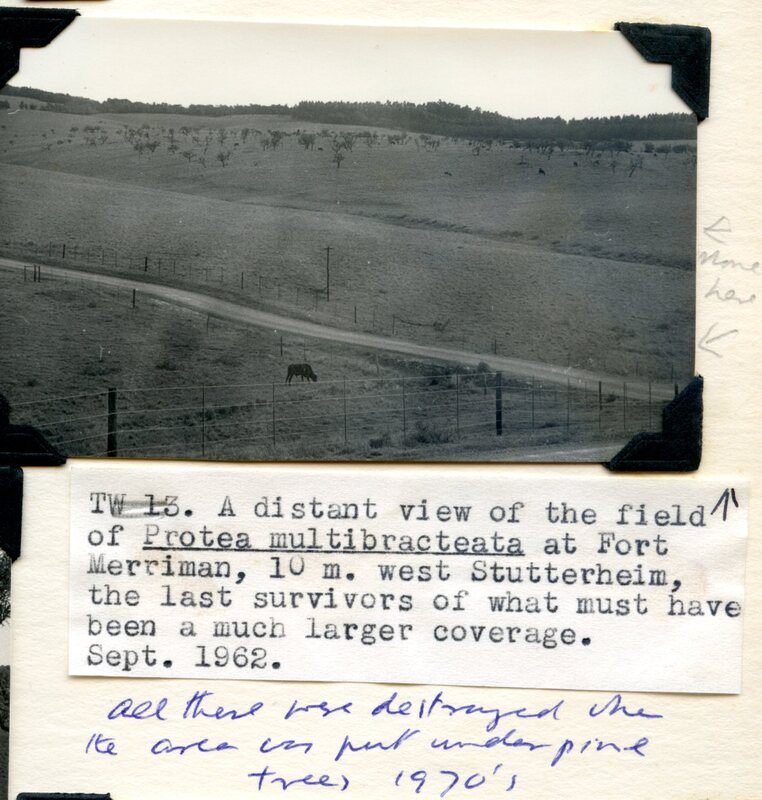 ← 
none
here
↙
TW 13. A distant view of the field ↑
of Protea multibracteata at Fort
Merriman, 10 m. west Stutterheim,
the last survivors of what must have
been a much larger coverage.
Sept. 1962.
all these were destroyed when
the area was put under pine
trees 1970's